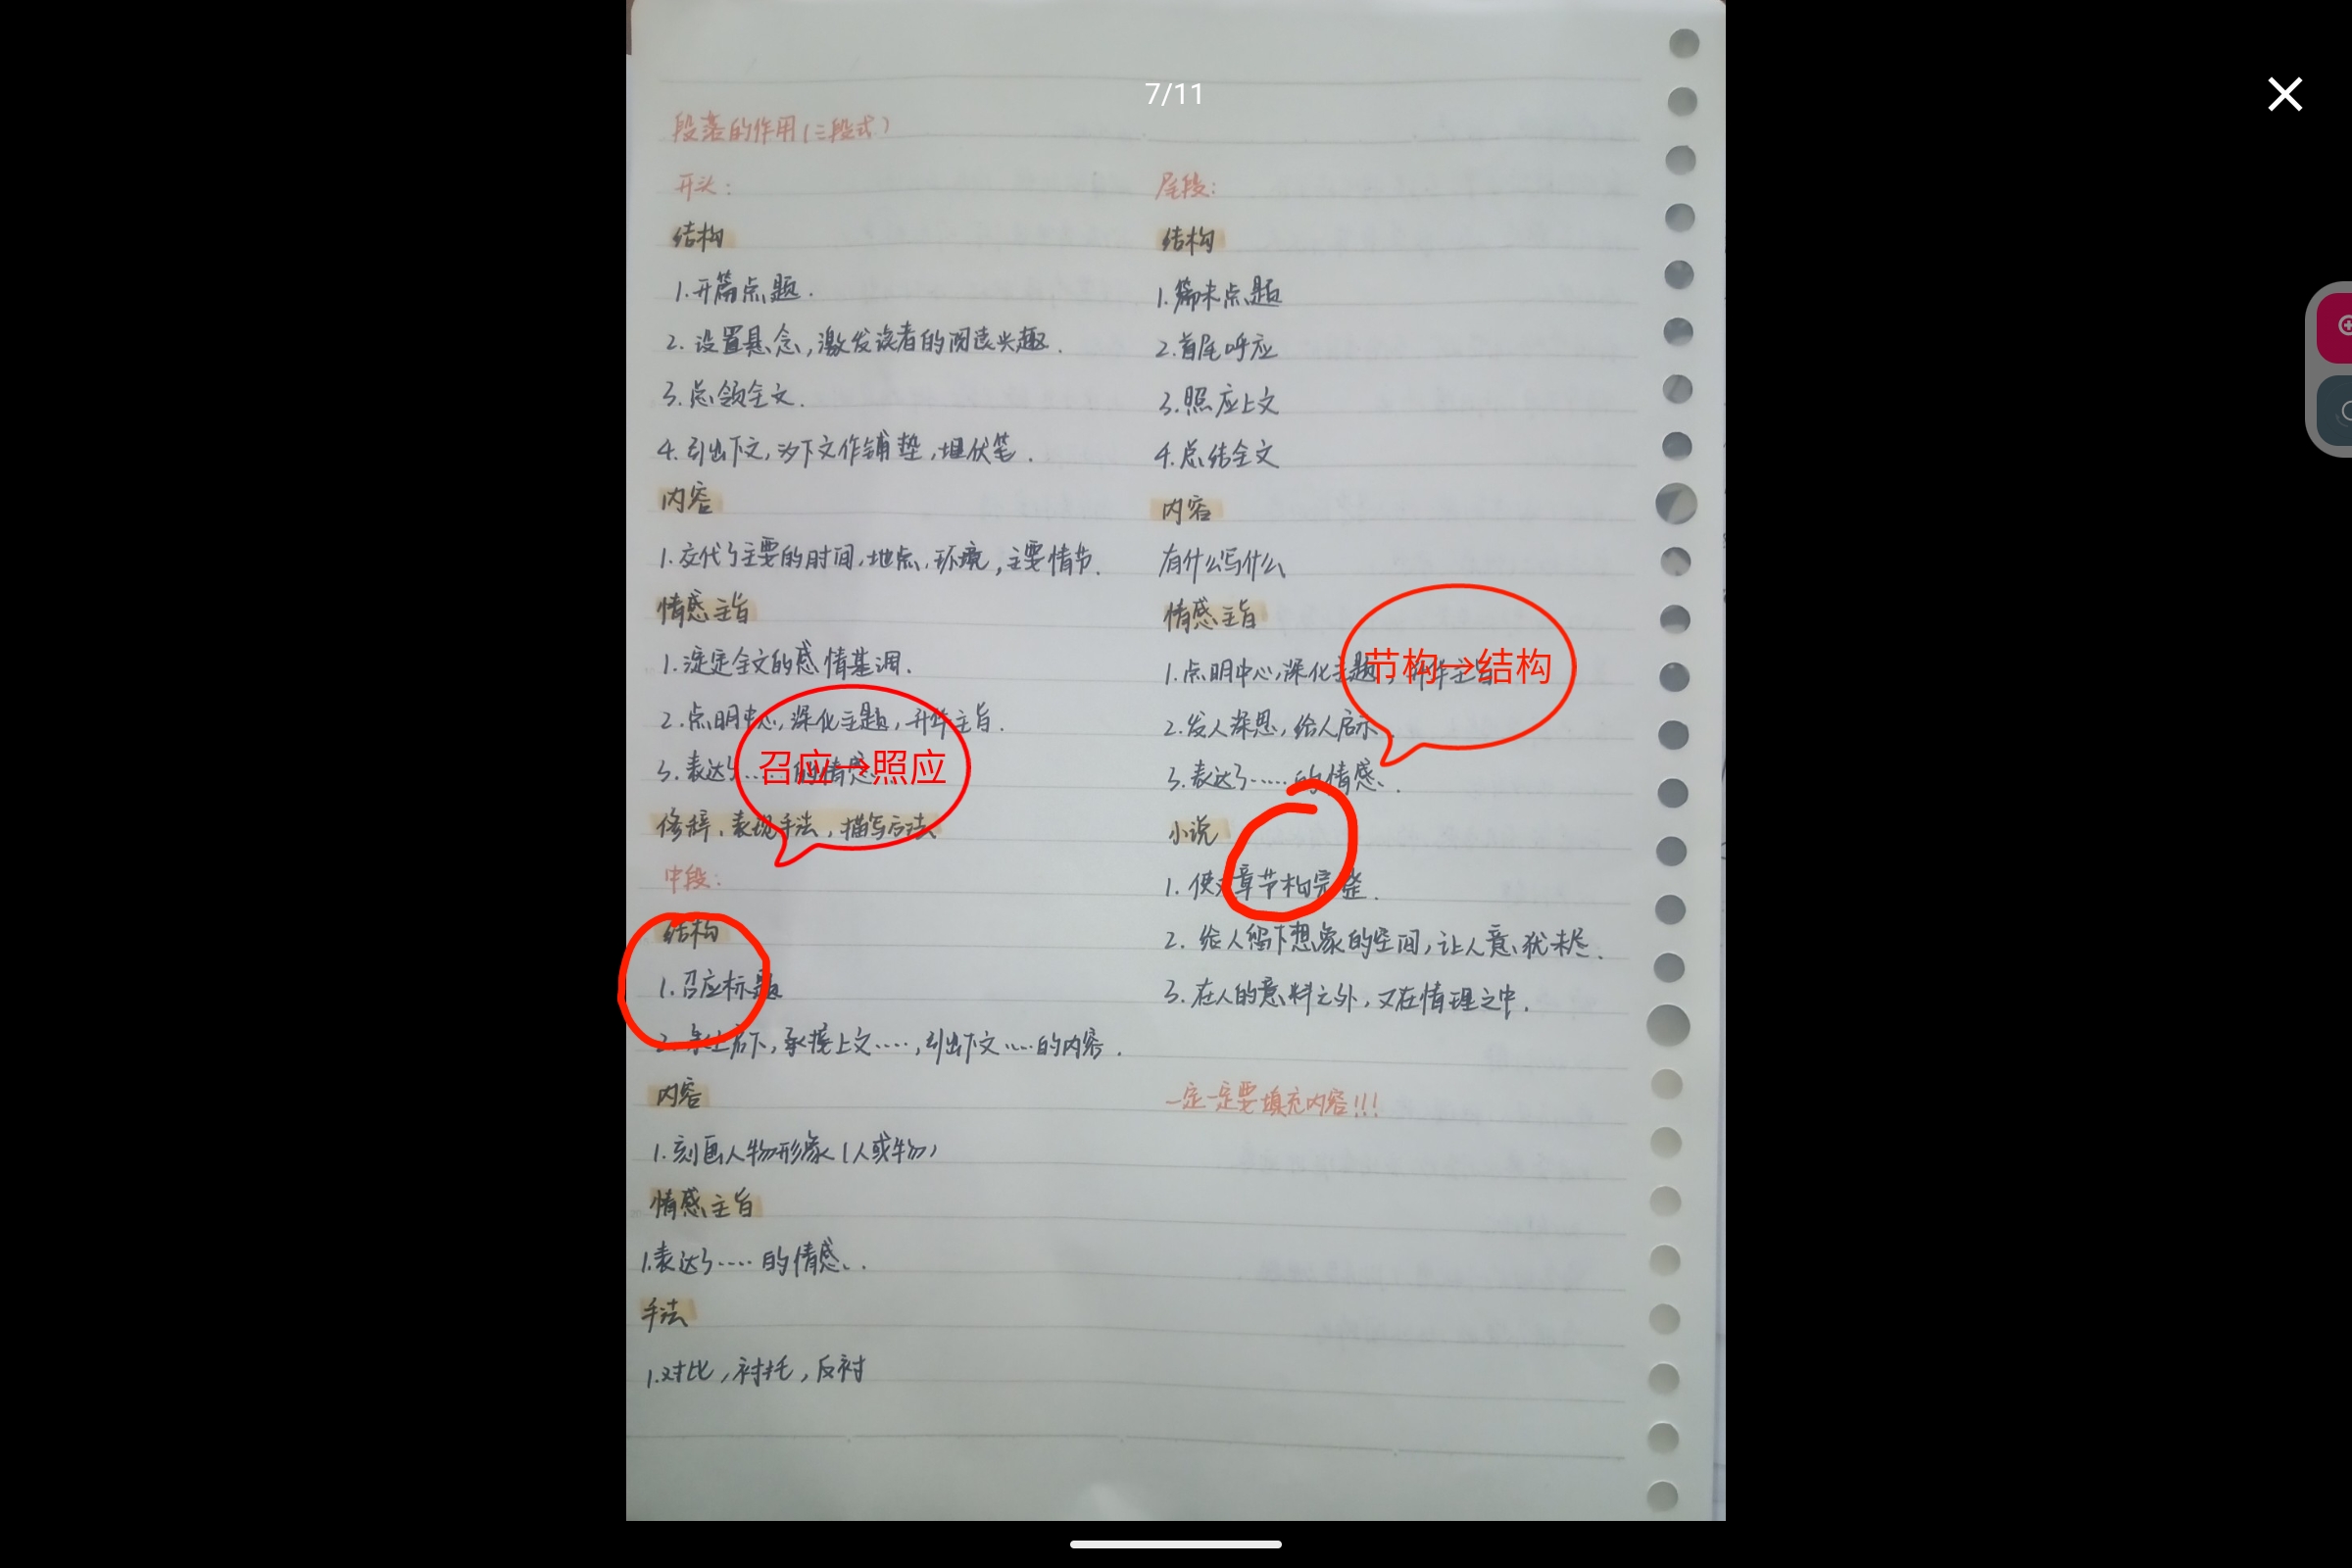 7/11
段落的作用(三段式)
开头:
结构
1.开篇点题.
2. 设置悬念,激发读者的阅读兴趣.
3.总领全文.
4.引出下文,为下文作铺垫,埋伏笔.
内容
1.交代了主要的时间,地点,环境,主要情节.
情感主旨
1.淀定全文的感情基调.
2.点明中心,深化主题,升华主旨.
3.表达了……的情感
召应→照应
修辞,表现手法,描写方法
中段:
结构
1.召应标题
2.承上启下,承接上文……,引出下文……的内容.
内容
1.刻画人物形象(人或物)
情感主旨
1.表达了……的情感.
手法
1.对比,衬托,反衬
尾段:
结构
1.篇末点题
2.首尾呼应
3.照应上文
4.总结全文
内容
有什么写什么
情感主旨
1.点明中心,深化主题,升华主旨
节构→结构
2.发人深思,给人启示
3.表达了……的情感.
小说
1.使文章节构完整.
2. 给人留下想象的空间,让人意犹未尽.
3.在人的意料之外,又在情理之中.
一定一定要填充内容!!!